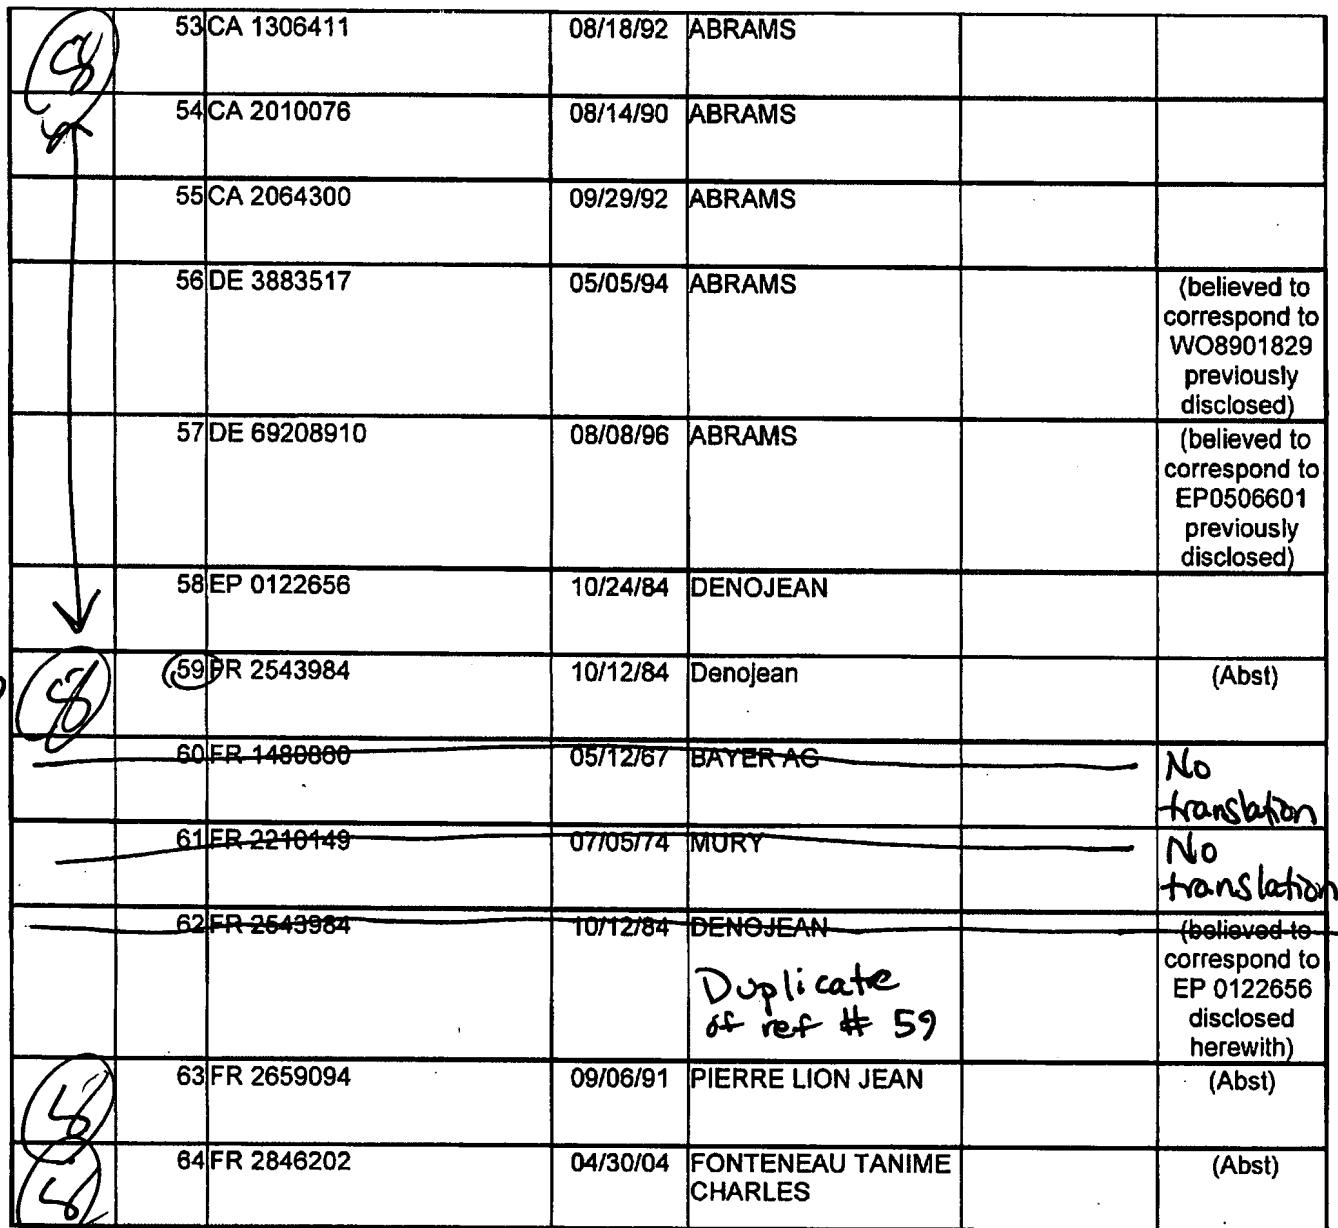 53 CA 1306411 08/18/92 ABRAMS
54 CA 2010076 08/14/90 ABRAMS
55 CA 2064300 09/29/92 ABRAMS
56 DE 3883517 05/05/94 ABRAMS (believed to
correspond to
WO8901829
previously
disclosed)
57 DE 69208910 08/08/96 ABRAMS (believed to
correspond to
EP0506601
previously
disclosed)
58 EP 0122656 10/24/84 DENOJEAN
59 FR 2543984 10/12/84 Denojean (Abst)
60 FR 1480860 05/12/67 BAYER AG No
translation
61 FR 2210149 07/05/74 MURY No
translation
62 FR 2543984 10/12/84 DENOJEAN (believed to
correspond to
EP 0122656
disclosed
herewith)
Duplicate
of ref # 59
63 FR 2659094 09/06/91 PIERRE LION JEAN (Abst)
64 FR 2846202 04/30/04 FONTENEAU TANIME (Abst)
CHARLES